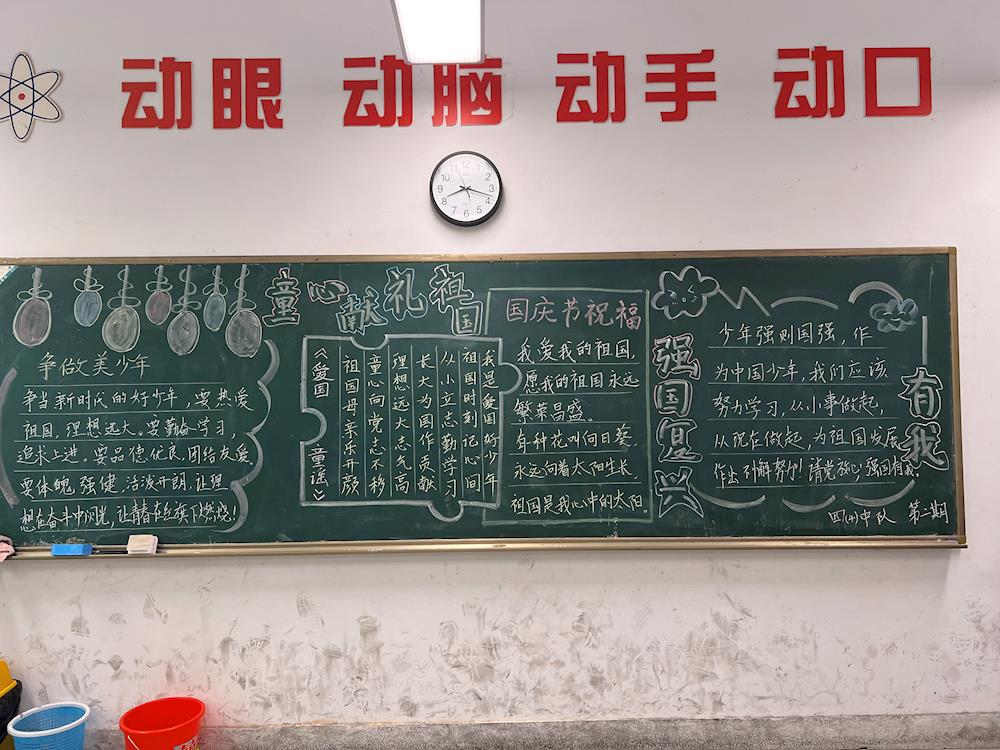 动眼 动脑 动手 动口
12
1
2
3
4
5
6
7
8
9
10
11
童心献礼祖国
争做美少年
争当新时代的好少年，要热爱
祖国，理想远大。要勤奋学习，
追求上进。要品德优良，团结友爱，
要体魄强健，活泼开朗，让理
想在奋斗中闪光，让青春在红旗下燃烧！
《爱国 童谣》
我是爱国好少年
祖国时刻记心间
从小立志勤学习
长大为国作贡献
理想远大志气高
童心向党志不移
祖国母亲乐开颜
国庆节祝福
我爱我的祖国，
愿我的祖国永远
繁荣昌盛。
有种花叫向日葵，
永远向着太阳生长，
祖国是我心中的太阳。
强国复兴
有我
少年强则国强，作
为中国少年，我们应该
努力学习，从小事做起，
从现在做起，为祖国发展
作出 努力！请党放心，强国有我。
四(4)中队 第二期